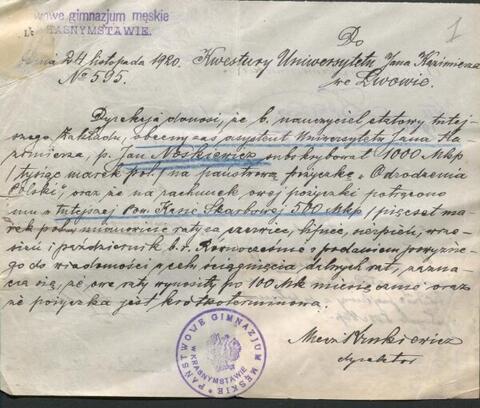 Państwowe gimnazjum męskie
w KRASNYMSTAWIE.
1
Do
dnia 24 listopada 1920. Kwestury Uniwersytetu Jana Kazimierza
No 595. we Lwowie.
Dyrekcja donosi, że b. nauczyciel etatowy tutej-
szego Zakładu, obecny zaś asystent Uniwersytetu Jana Ka-
zimierza, p. Jan Noskiewicz subskrybował 1000 Mkp
/tysiąc marek pol./ na państwową pożyczkę „Odrodzenia
Polski" oraz że na rachunek owej pożyczki potrącono
mu w tutejszej Pow. Kasie Skarbowej 500 Mkp /pięćset ma-
rek pol./ mianowicie ratę za czerwiec, lipiec, sierpień, wrze-
sień i październik b.r. Równocześnie z podaniem powyższe-
go do wiadomości w celu ściągnięcia dalszych rat, zazna-
cza się, że owe raty wynosiły po 100 Mk miesięcznie oraz
że pożyczka jest krótkoterminową.
dyrektor
PAŃSTWOWE GIMNAZJUM MĘSKIE
W KRASNYMSTAWIE